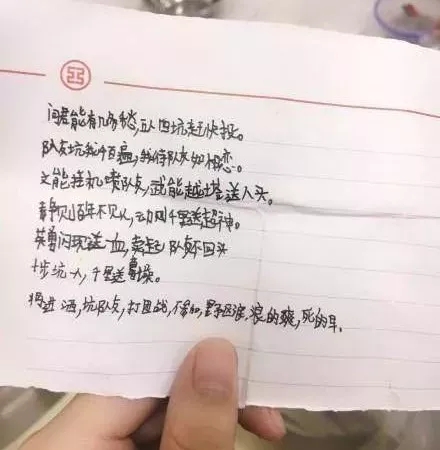 问君能有几多愁,五人四坑赶快投。
队友坑我千百遍,我待队友如初恋。
文能挂机喷队友,武能越塔送人头。
静则百年不见人,动则千里送超神。
英勇闪现送一血,卖起队友不回头
十步坑一人,千里送操。
将进酒,坑队友,打团战,不参加,野区浪,浪的爽,死的早.